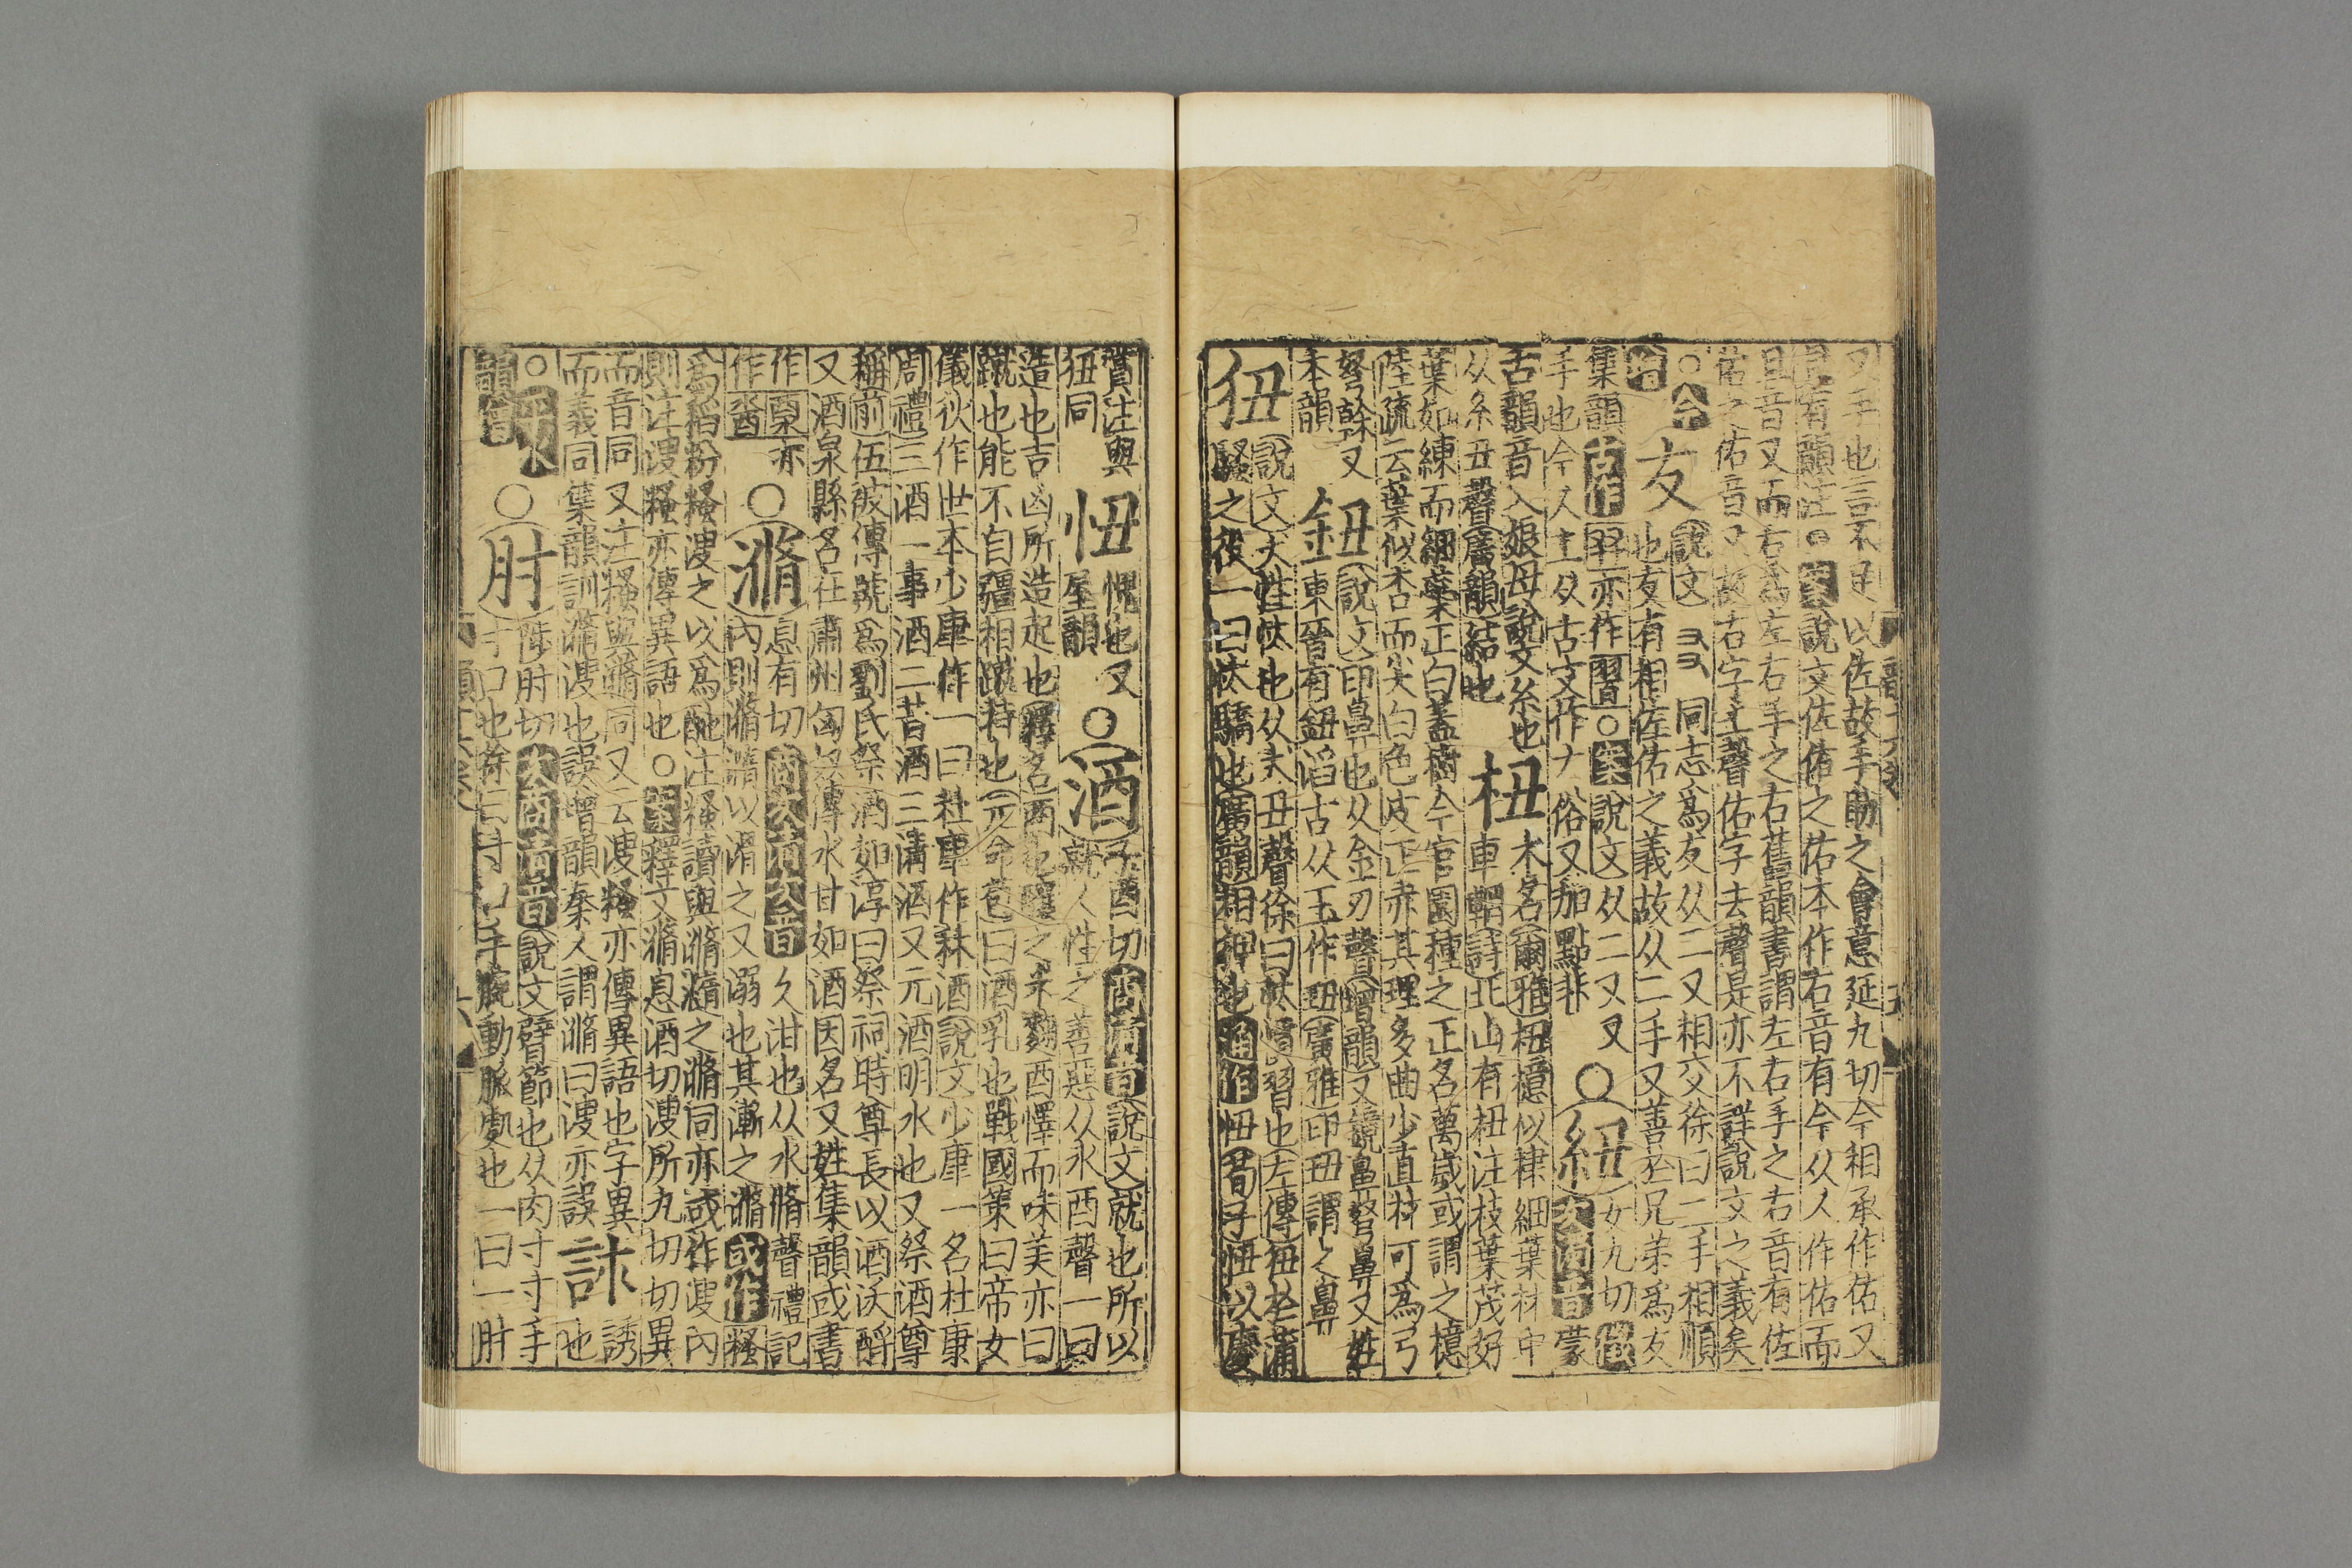 又手也言不足以佐故手助之會意延九切今相承作佑又
見有韻注○案說文佐佑之佑本作右音有今从人作佑而
且音又而右爲左右手之右舊韻書謂左右手之右音有佐
佑之佑音又故右字去聲佑字去聲是亦不詳說文之義矣
○今增
友
說文 同志爲友从二又相交徐曰二手相順
也友有相佐佑之義故从二手又善於兄弟爲友
集韻古作 亦作習○案說文从二又又
手也今人 古文作ナ俗又加點非
○紐
女九切
次商音蒙
古韻音入娘母說文糸也
从糸丑聲廣韻結也
杻
木名爾雅杻檍似棣細葉
車輞詩北山有杻注枝葉茂好
葉如練而細蘂正白蓋樹今官園種之正名萬歲或謂之檍
陸疏云葉似杏而尖白色皮正赤其理多曲少直材可爲弓
弩幹又
木韻
鈕
說文印鼻也从金丑聲增韻又鏡鼻弩鼻又姓
東晉有鈕滔古从玉作玨廣雅印玨謂之鼻
狃
說文犬性忕也从犬丑聲徐曰忕慣習也左傳狃於蒲
騷之役一曰忕驕也廣韻相狎也通作忸荀子忸以慶
賞注與
狃同
忸
愧也又
屋韻
○酒
子酉切商清音說文就也所以
就人性之善惡从水酉聲一曰
造也吉凶所造起也釋名酉也釀之米麴酉懌而味美亦曰
蹴也能不自彊相蹴持也元命苞曰酒乳也戰國策曰帝女
儀狄作世本少康作一曰杜康作秫酒說文少康一名杜康
周禮三酒一事酒二昔酒三清酒又元酒明水也又祭酒尊
稱前伍被傳號爲劉氏祭酒如淳曰祭祠時尊長以酒沃酹
又酒泉縣名在肅州匈奴傳水甘如酒因名又姓集韻或書
作 亦
作酋
○滫
息有切商次清次音久泔也从水脩聲禮記
內則滫瀡以滑之又溺也其漸之滫或作䅳
爲稻粉䅳溲之以爲酏注䅳讀與滫瀡之滫同亦或作溲內
則注溲䅳亦傳異語也○案釋文滫息酒切溲所九切切異
而音同又注䅳與滫同又云溲䅳亦傳異語也字異
而義同集韻訓滫溲也誤增韻秦人謂滫曰溲亦誤
訹
誘
也
○
韻會
○肘
陟肘切次商清音說文臂節也从肉寸寸手
寸口也徐曰寸口手腕動脈處也一曰一肘